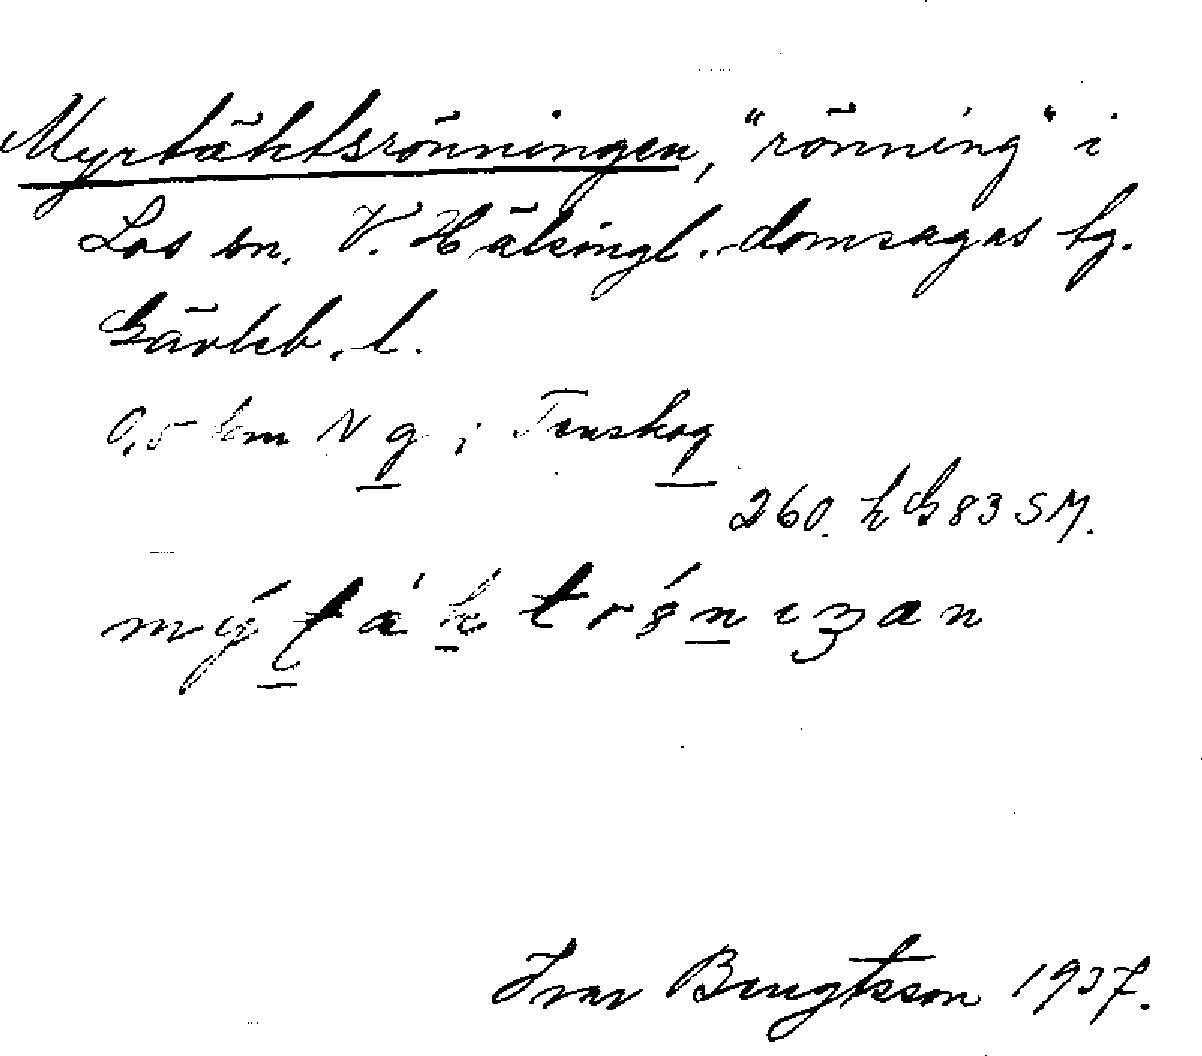 Myrtäktsrönningen, "rönning" i
Los sn. V. Hälsingl. domsagas tg.
Gävleb. l.
0,5 km N g i Tenskog
260. h G 83 SM.
Ivar Bengtsson 1937.